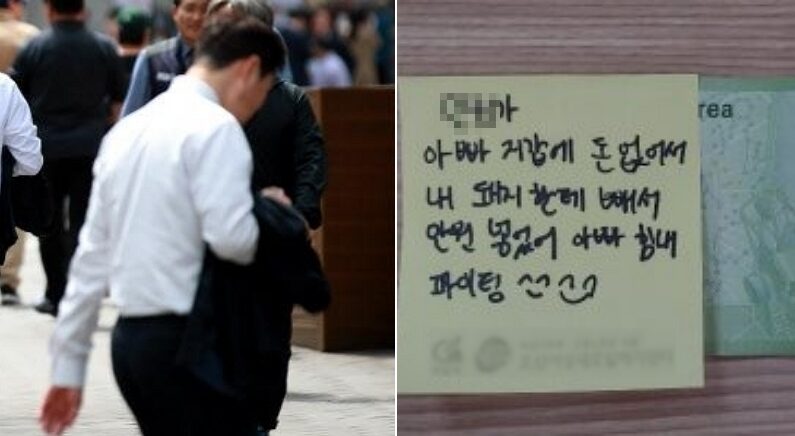 가
아빠 지갑에 돈 없어서
내 돼지 한테 빼서
만원 넣었어 아빠 힘내
파이팅
rea